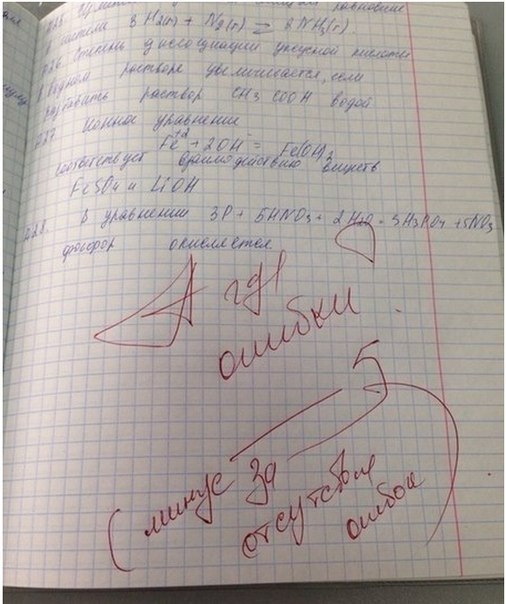 системе 3 H2(г) + N2(г) ⇄ 2 NH3(г).
А26. Степень диссоциации уксусной кислоты
в водном растворе увеличивается, если
разбавить раствор CH3COOH водой
А27. Ионное уравнение
Fe+2 + 2OH- = Fe(OH)2
соответствует взаимодействию веществ
FeSO4 и LiOH
А28. В уравнении 3P + 5HNO3 + 2H2O = 3H3PO4 + 5NO3
фосфор окисляется.
А где
ошибки ?
5
(минус за
отсутствие
ошибок)